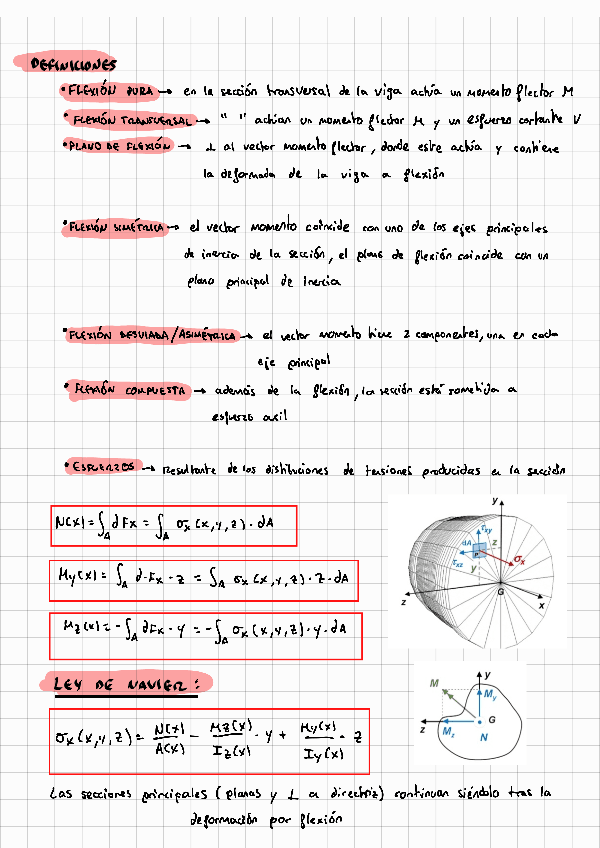 DEFINICIONES
• FLEXIÓN PURA → en la sección transversal de la viga actúa un momento flector M
• FLEXIÓN TRANSVERSAL → " " actúan un momento flector M y un esfuerzo cortante V
• PLANO DE FLEXIÓN → ⊥ al vector momento flector, donde este actúa y contiene
la deformada de la viga a flexión
• FLEXIÓN SIMÉTRICA → el vector momento coincide con uno de los ejes principales
de inercia de la sección, el plano de flexión coincide con un
plano principal de inercia
• FLEXIÓN DESVIADA/ASIMÉTRICA → el vector momento tiene 2 componentes, una en cada
eje principal
• FLEXIÓN COMPUESTA → además de la flexión, la sección está sometida a
esfuerzo axil
• ESFUERZOS → Resultante de las distribuciones de tensiones producidas en la sección
N(x) = ∫_A dFx = ∫_A σx(x,y,z)·dA
My(x) = ∫_A dFx·z = ∫_A σx(x,y,z)·z·dA
Mz(x) = -∫_A dFx·y = -∫_A σx(x,y,z)·y·dA
y
τxy
dA
z
P
τxz
y
σx
G
z
x
LEY DE NAVIER:
σx(x,y,z) = N(x)/A(x) - Mz(x)/Iz(x)·y + My(x)/Iy(x)·z
y
M
My
G
z
Mz
N
Las secciones principales (planas y ⊥ a directriz) continúan siéndolo tras la
deformación por flexión